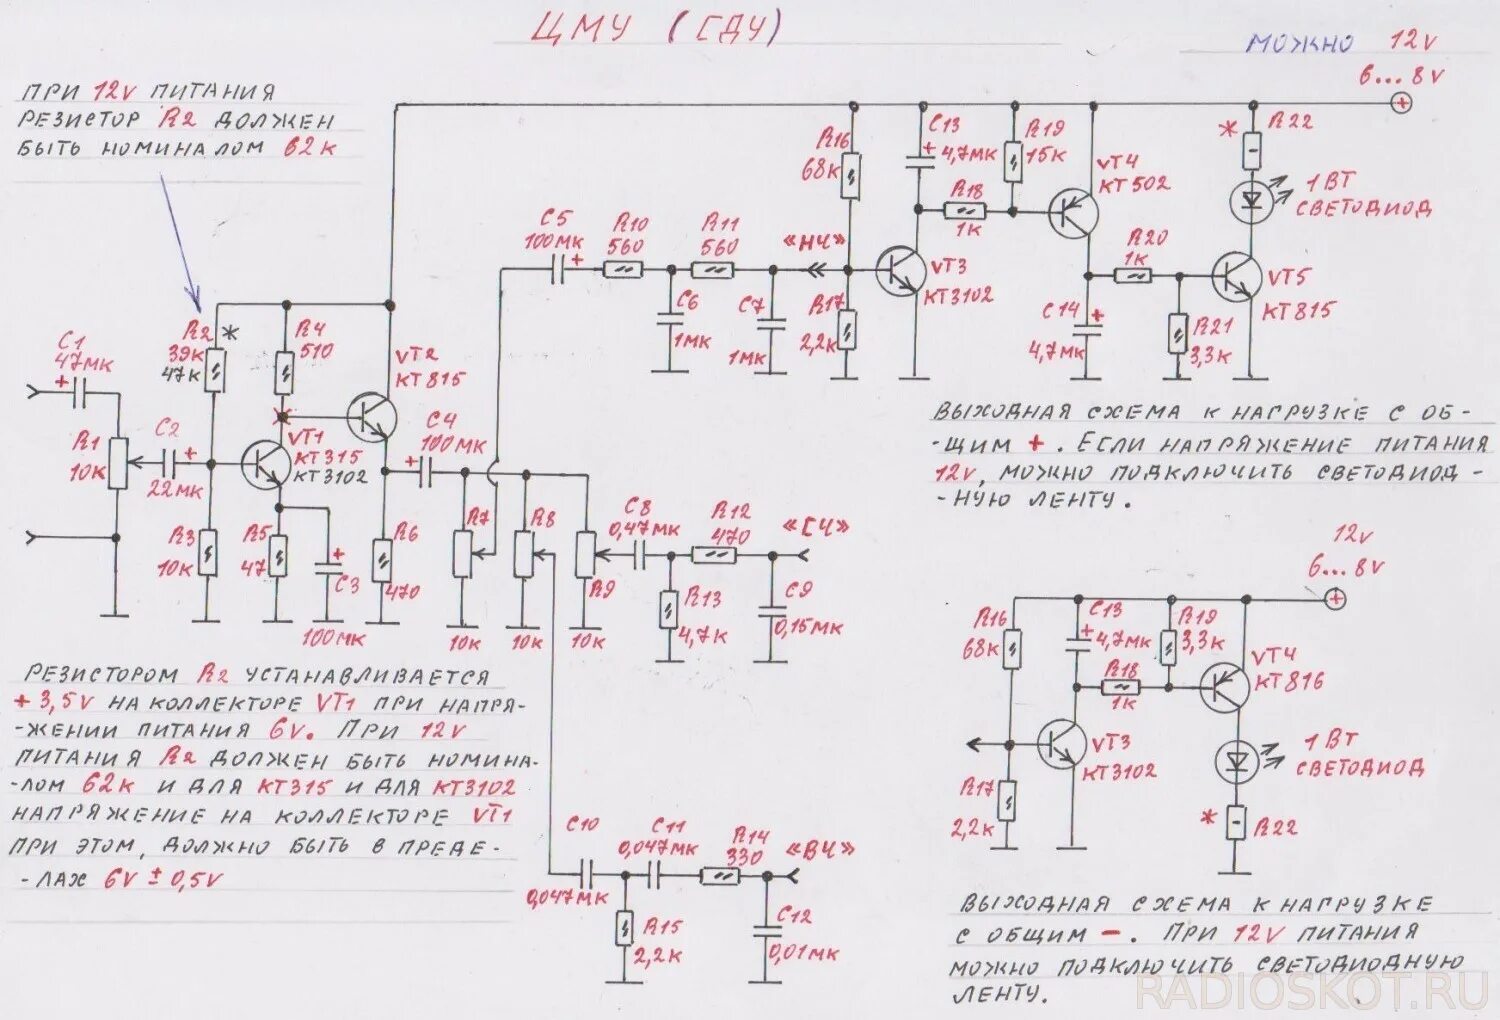 ЦМУ (СДУ)
МОЖНО 12V
6...8V
ПРИ 12V ПИТАНИЯ
РЕЗИСТОР R2 ДОЛЖЕН
БЫТЬ НОМИНАЛОМ 62К
C1
47МК
R1
10К
C2
22МК
R2 *
39К
47К
R4
510
VT1
КТ315
КТ3102
R3
10К
R5
47
C3
100МК
VT2
КТ815
C4
100МК
R6
470
R7
10К
R8
10К
R9
10К
C5
100МК
R10
560
R11
560
«НЧ»
C6
1МК
C7
1МК
R16
68К
R17
2,2К
C13
4,7МК
R18
1К
R19
15К
VT3
КТ3102
VT4
КТ502
R20
1К
C14
4,7МК
R21
3,3К
VT5
КТ815
* R22
1ВТ
СВЕТОДИОД
C8
0,47МК
R12
470
«СЧ»
R13
4,7К
C9
0,15МК
C10
0,047МК
C11
0,047МК
R14
330
«ВЧ»
R15
2,2К
C12
0,01МК
ВЫХОДНАЯ СХЕМА К НАГРУЗКЕ С ОБ-
-ЩИМ +. ЕСЛИ НАПРЯЖЕНИЕ ПИТАНИЯ
12V, МОЖНО ПОДКЛЮЧИТЬ СВЕТОДИОД-
-НУЮ ЛЕНТУ.
12V
6...8V
R16
68К
C13
4,7МК
R19
3,3К
R18
1К
VT4
КТ816
VT3
КТ3102
R17
2,2К
1ВТ
СВЕТОДИОД
* R22
РЕЗИСТОРОМ R2 УСТАНАВЛИВАЕТСЯ
+3,5V НА КОЛЛЕКТОРЕ VT1 ПРИ НАПРЯ-
-ЖЕНИИ ПИТАНИЯ 6V. ПРИ 12V
ПИТАНИЯ R2 ДОЛЖЕН БЫТЬ НОМИНА-
-ЛОМ 62К И ДЛЯ КТ315 И ДЛЯ КТ3102
НАПРЯЖЕНИЕ НА КОЛЛЕКТОРЕ VT1
ПРИ ЭТОМ, ДОЛЖНО БЫТЬ В ПРЕДЕ-
-ЛАХ 6V ± 0,5V
ВЫХОДНАЯ СХЕМА К НАГРУЗКЕ
С ОБЩИМ -. ПРИ 12V ПИТАНИЯ
МОЖНО ПОДКЛЮЧИТЬ СВЕТОДИОДНУЮ
ЛЕНТУ.
RADIOSKOT.RU